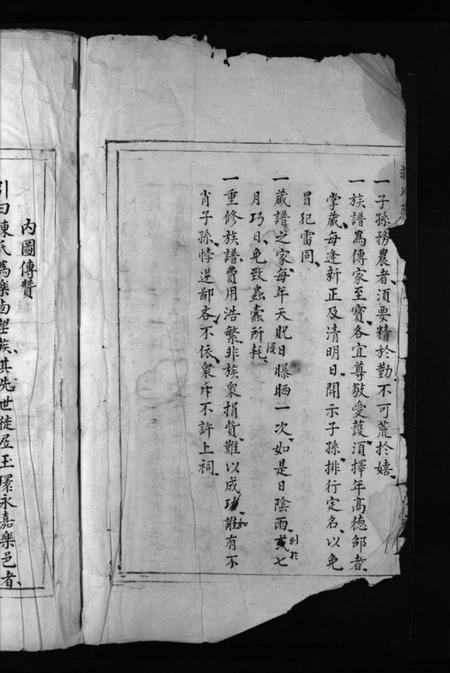 一子孫務農者須要精於勤不可荒於嬉
一族譜為傳家至寶各宜尊敬愛護須擇年高德邵者
掌藏每逢新正及清明日開示子孫排行定名以免
冒犯雷同
一藏譜之家每年天貺日曝晒一次如是日陰雨則於或七
月巧日免致蟲蠹所耗
一重修族譜費用浩繁非族衆捐貲難以成功如有不
肖子孫悖逆鄙吝不依衆斥不許上祠
內圖傳贊
引曰陳氏為樂西望族其先世徙居玉環永嘉樂邑者